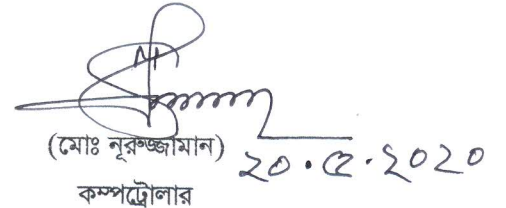 (মোঃ নূরুজ্জামান) ২০.৫.২০২০
কম্পট্রোলার